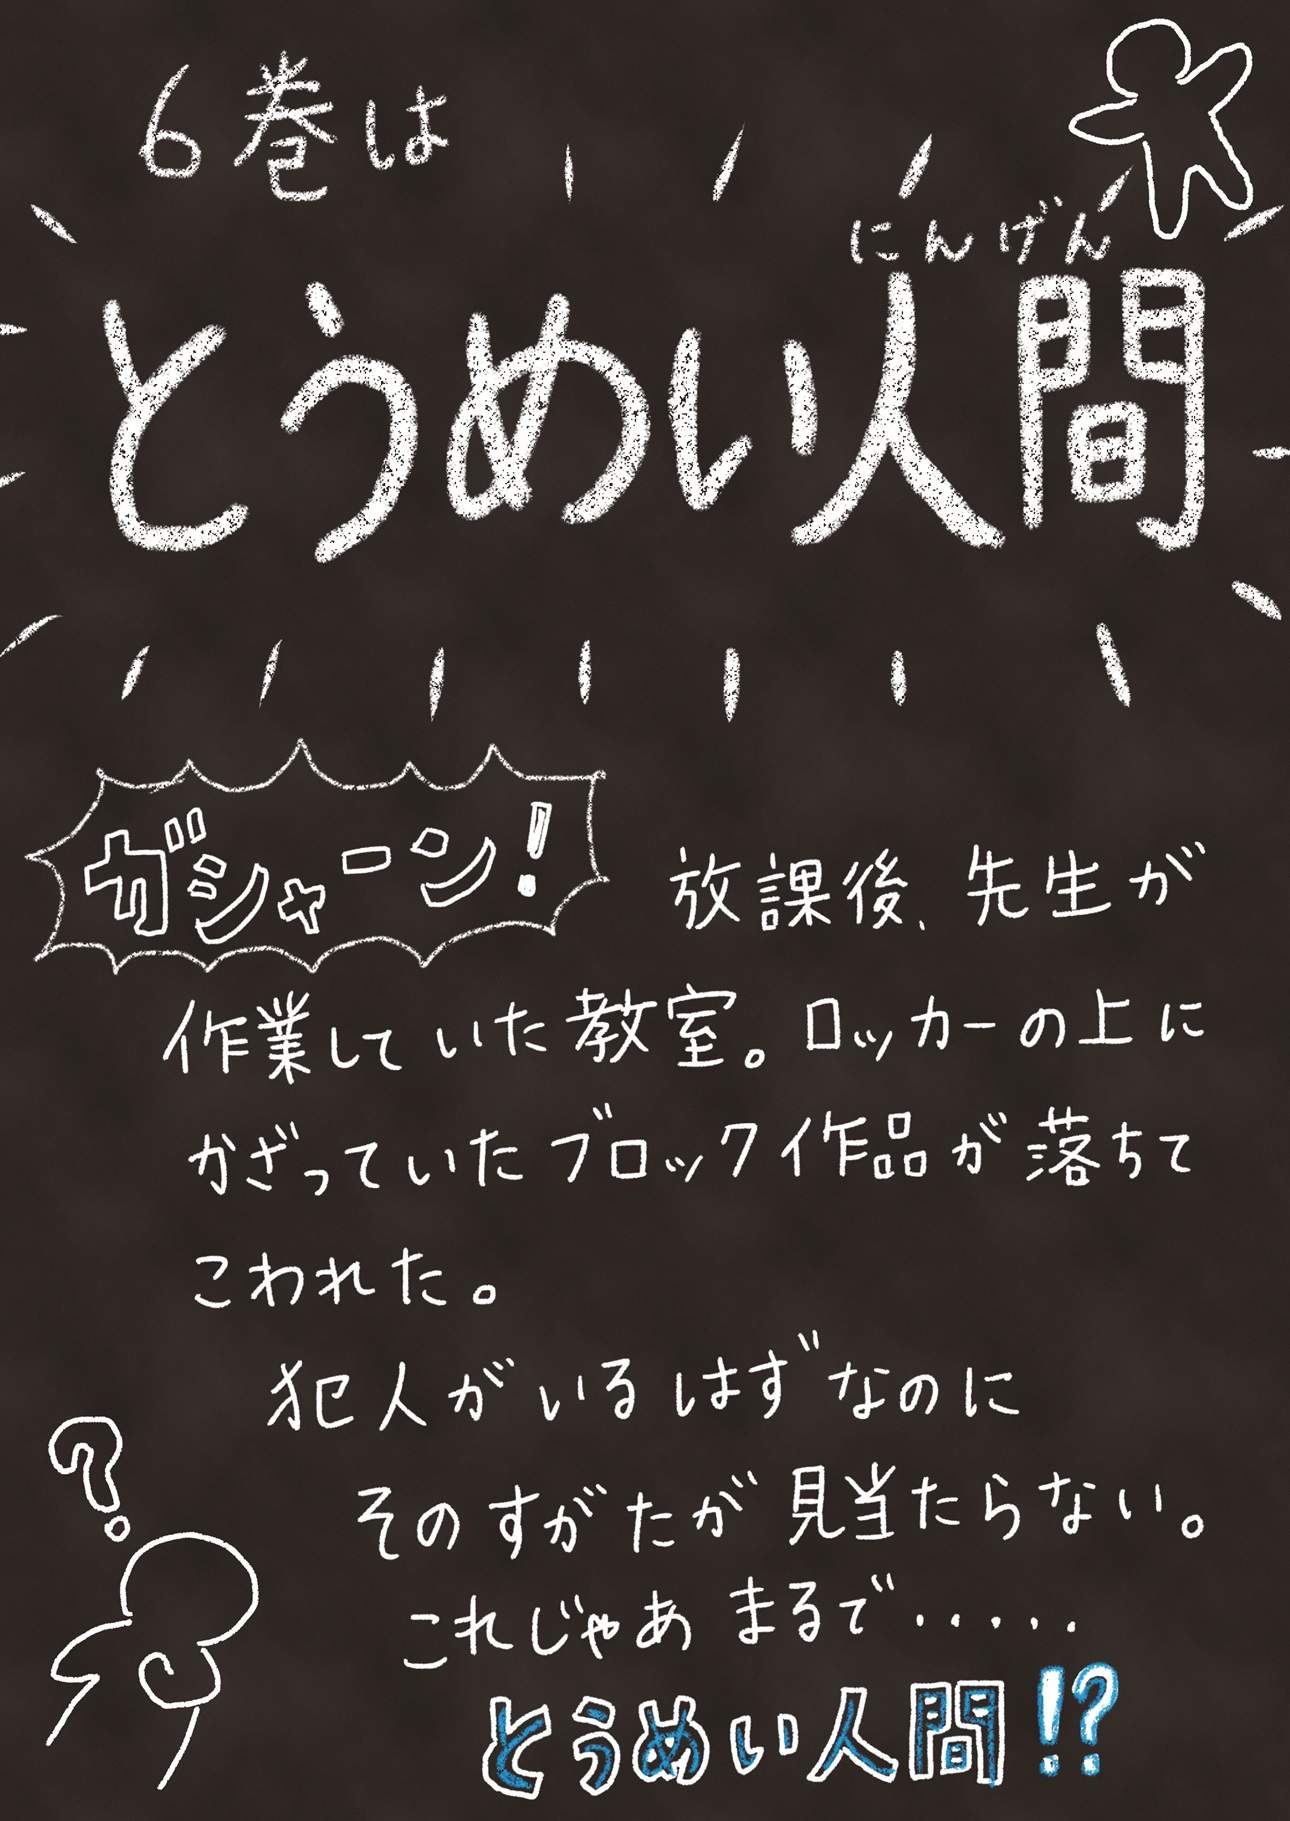 6巻は
にんげん
とうめい人間
ガシャーン!
放課後、先生が
作業していた教室。ロッカーの上に
かざっていたブロック作品が落ちて
こわれた。
犯人がいるはずなのに
そのすがたが見当たらない。
これじゃあまるで・・・・・
とうめい人間!?
?